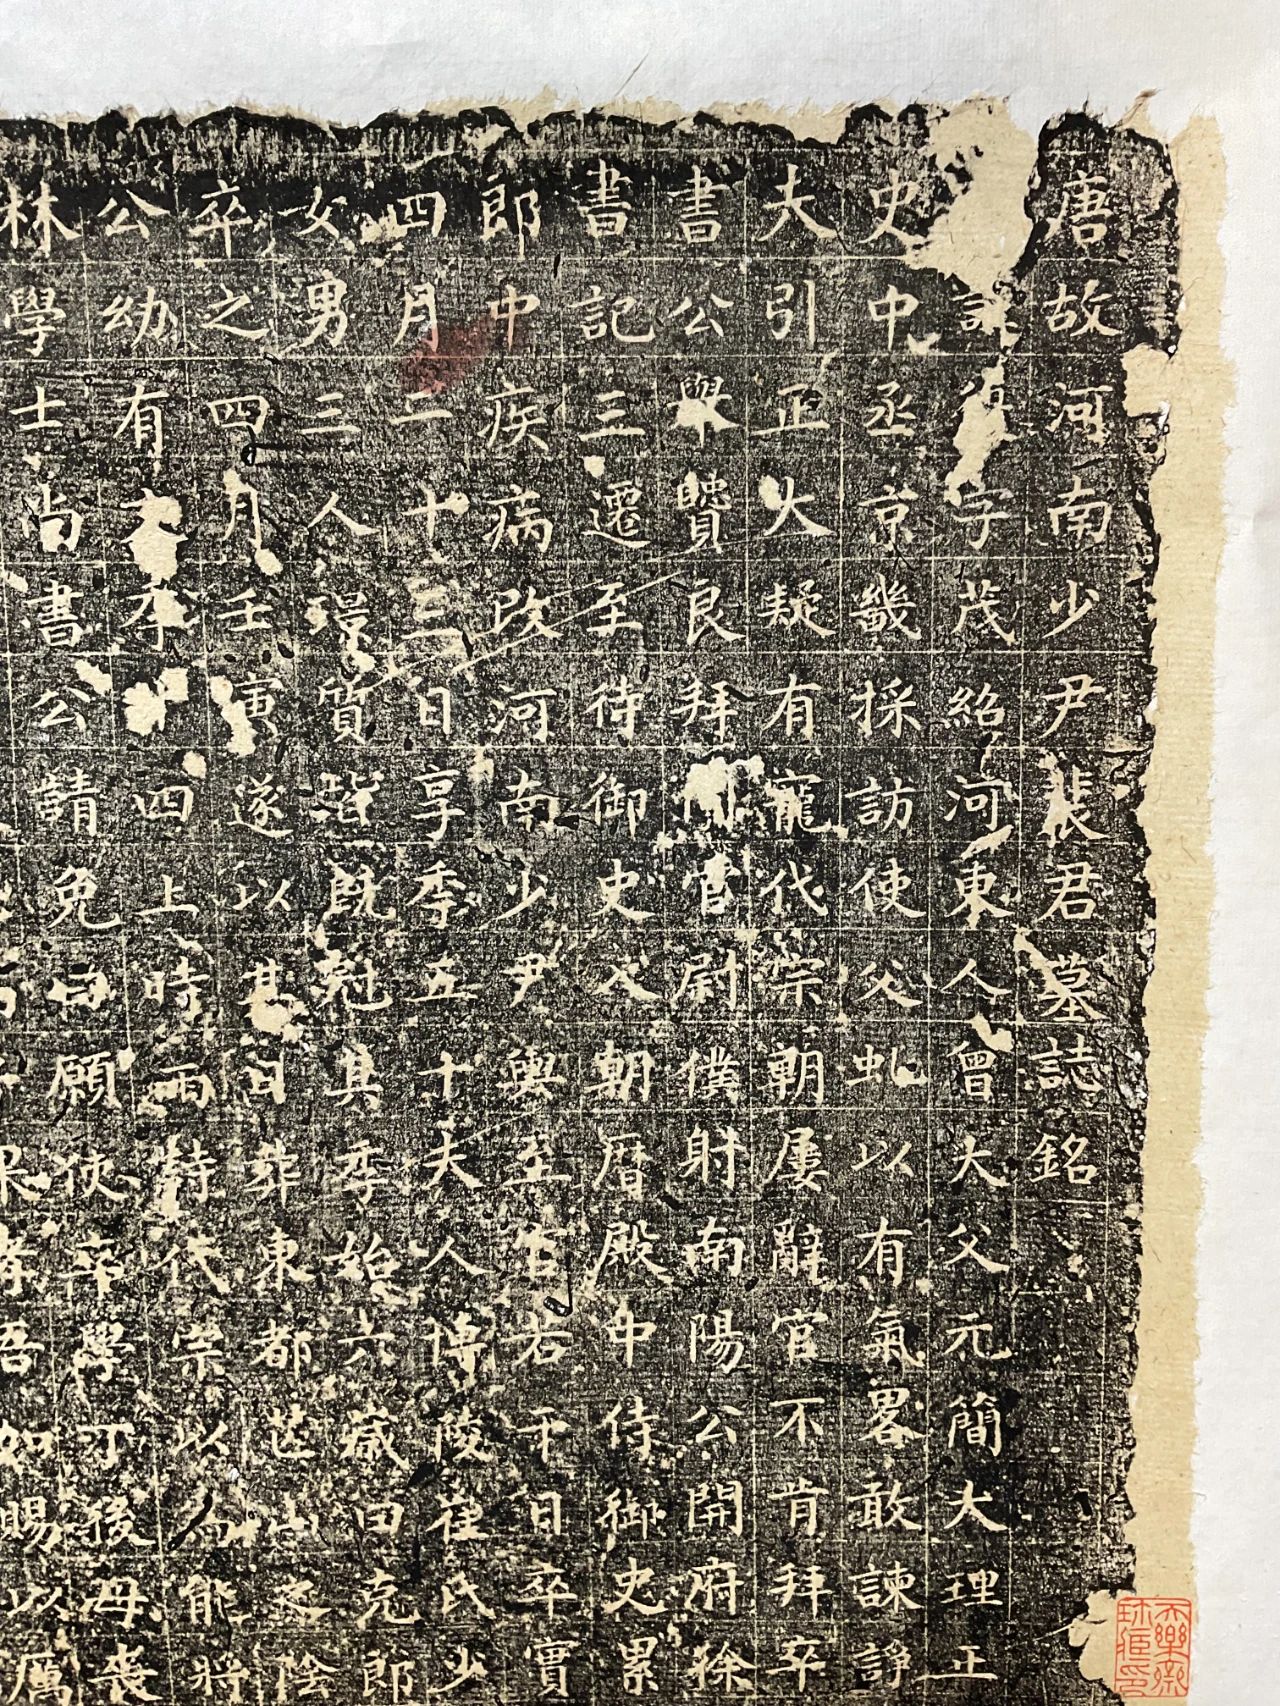 唐故河南少尹裴君墓誌銘
諱復字茂紹河東人曾大父元簡大理正
史中丞京畿採訪使父虬以有氣畧敢諫諍
大引正大疑有寵代宗朝屢辭官不肯拜卒
書公舉賢良拜官尉僕射南陽公開府徐
書記三遷至侍御史入朝歷殿中侍御史累
郎中疾病改河南少尹輿至官若干日卒實
四月二十三日享季五十夫人博陵崔氏少
女男三人璟質皆既冠其季始六歲曰充郎
卒之四月壬寅遂以其日葬東都芒山之陰
公幼有文季十四上時雨詩代宗以為能將
林學士尚書公請免曰願使卒學丁後母喪
吾如賜以厲